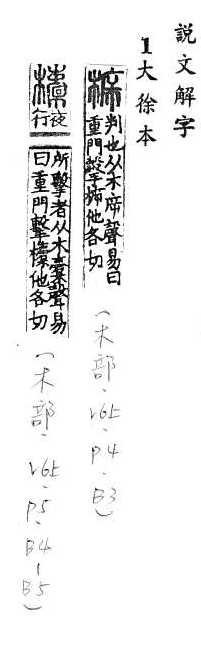 説文解字
1大徐本
㭊判也从木㡿聲易曰
重門擊㭊他各切
(木部、V6上、P4、B3)
㯱夜行
所擊者从木橐聲易
曰重門擊㯱他各切
(木部、V6上、P5、B4-B5)